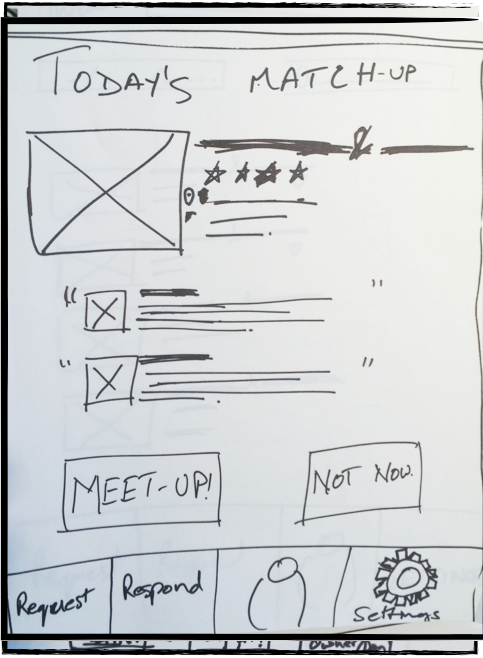 TODAY'S MATCH-UP
&
"
"
"
"
MEET-UP!
NOT NOW.
Request
Respond
Settings